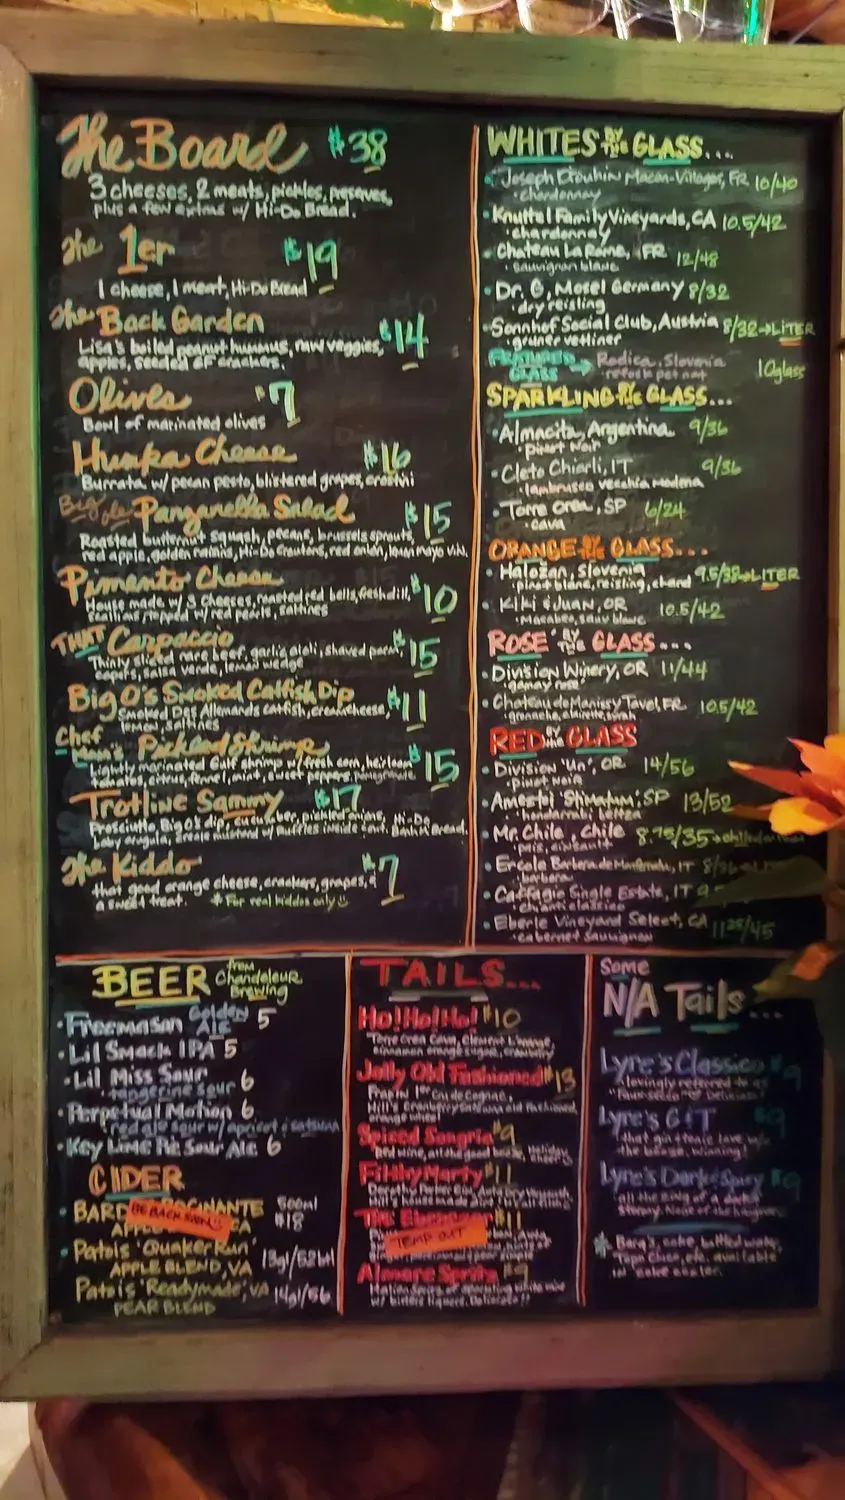 The Board $38
3 cheeses, 2 meats, pickles, preserves,
plus a few extras w/ Hi-Do Bread.
The 1er $19
1 cheese, 1 meat, Hi-Do Bread
The Back Garden $14
Lisa's boiled peanut hummus, raw veggies,
apples, seeded GF crackers.
Olives $7
Bowl of marinated olives
Hunka Cheese $16
Burrata w/ pecan pesto, blistered grapes, crostini
Big ole Panzanella Salad $15
Roasted butternut squash, pecans, brussels sprouts,
red apple, golden raisins, Hi-Do Croutons, red onion,
Pimento Cheese $10
House made w/ 3 cheeses, roasted red bells, fresh dill,
scallions, topped w/ red pearls, saltines
THAT Carpaccio $15
Thinly sliced rare beef, garlic aioli, shaved parm,
capers, salsa verde, lemon wedge
Big O's Smoked Catfish Dip $11
Smoked Des Allemands catfish, cream cheese,
lemon, saltines
Chef Pickled Shrimp $15
Lightly marinated Gulf shrimp w/ fresh corn, heirloom
tomatoes, citrus, fennel, mint, sweet peppers,
Trotline Sammy $17
Prosciutto, Big O's dip, cucumber, pickled onions, Hi-Do
baby arugula, creole mustard w/ Bread.
The Kiddo $7
that good orange cheese, crackers, grapes, &
a sweet treat. *For real kiddos only
WHITES BY THE GLASS...
• Macon-Villages, FR 10/40
• chardonnay
• Knuttel Family Vineyards, CA 10.5/42
• chardonnay
• Chateau La Rame, FR 12/48
• sauvignon blanc
• Dr. G, Mosel Germany 8/32
• dry reisling
• Sonnhof Social Club, Austria 8/32→LITER
• gruner vetliner
FEATURED GLASS → Radica, Slovenia 10glass
• refosk pet nat
SPARKLING BY THE GLASS...
• Almacita, Argentina 9/36
• pinot noir
• Cleto Chiarli, IT 9/36
• lambrusco vecchia modena
• Torre Orea, SP 6/24
• cava
ORANGE BY THE GLASS...
• Halozan, Slovenia 9.5/38→LITER
• pinot blanc, reisling, chard
• Kiki & Juan, OR 10.5/42
• Macabeo, sauv blanc
ROSE' BY THE GLASS...
• Division Winery, OR 11/44
• gamay rose
• Chateau de Manissy Tavel, FR 10.5/42
• grenache, clairette, syrah
RED BY THE GLASS
• Division 'Un', OR 14/56
• pinot noir
• Amestoi 'Stimatum', SP 13/52
• hondarrabi beltza
• Mr. Chile, Chile 8.75/35→chilled
• pais, cinsault
• Ercole Barbera de Monferrato, IT 8/36
• barbera
• Caffagio Single Estate, IT
• chianti classico
• Eberle Vineyard Select, CA 11.25/45
• cabernet sauvignon
BEER from Chandeleur Brewing
• Freemason Golden Ale 5
• Lil Smack IPA 5
• Lil Miss Sour 6
• tangerine sour
• Perpetual Motion 6
red ale sour w/ apricot & satsuma
• Key Lime Pie Sour Ale 6
CIDER
• BARD ROCINANTE 500ml $18
BE BACK SOON
APPLE CA
• Patois 'Quaker Run' 13gl/52btl
APPLE BLEND, VA
Patois 'Readymade', VA 14gl/56
PEAR BLEND
TAILS...
Ho! Ho! Ho! $10
Torre Orea Cava, Clement L'orange,
cinnamon orange sugar, cranberry
Jolly Old Fashioned $13
Frapin 1er Cru de Cognac,
Hill's Cranberry Satsuma old fashioned,
orange wheel
Spiced Sangria $9
Red wine,
Filthy Marty $11
Dorothy Parker Gin,
$11
TEMP OUT
Almare Spritz $9
Italian Spritz of sparkling white wine
w/ bitters liqueur. Delicato!!
Some
N/A Tails...
Lyre's Classico $9
lovingly referred to as
Lyre's G&T $9
that gin & tonic love w/o
the booze. Winning!
Lyre's Dark & Spicy $9
all the zing of a dark &
stormy. None of the hangover.
* Barq's, coke, bottled water,
Topo Chico, etc. available
in coke cooler.